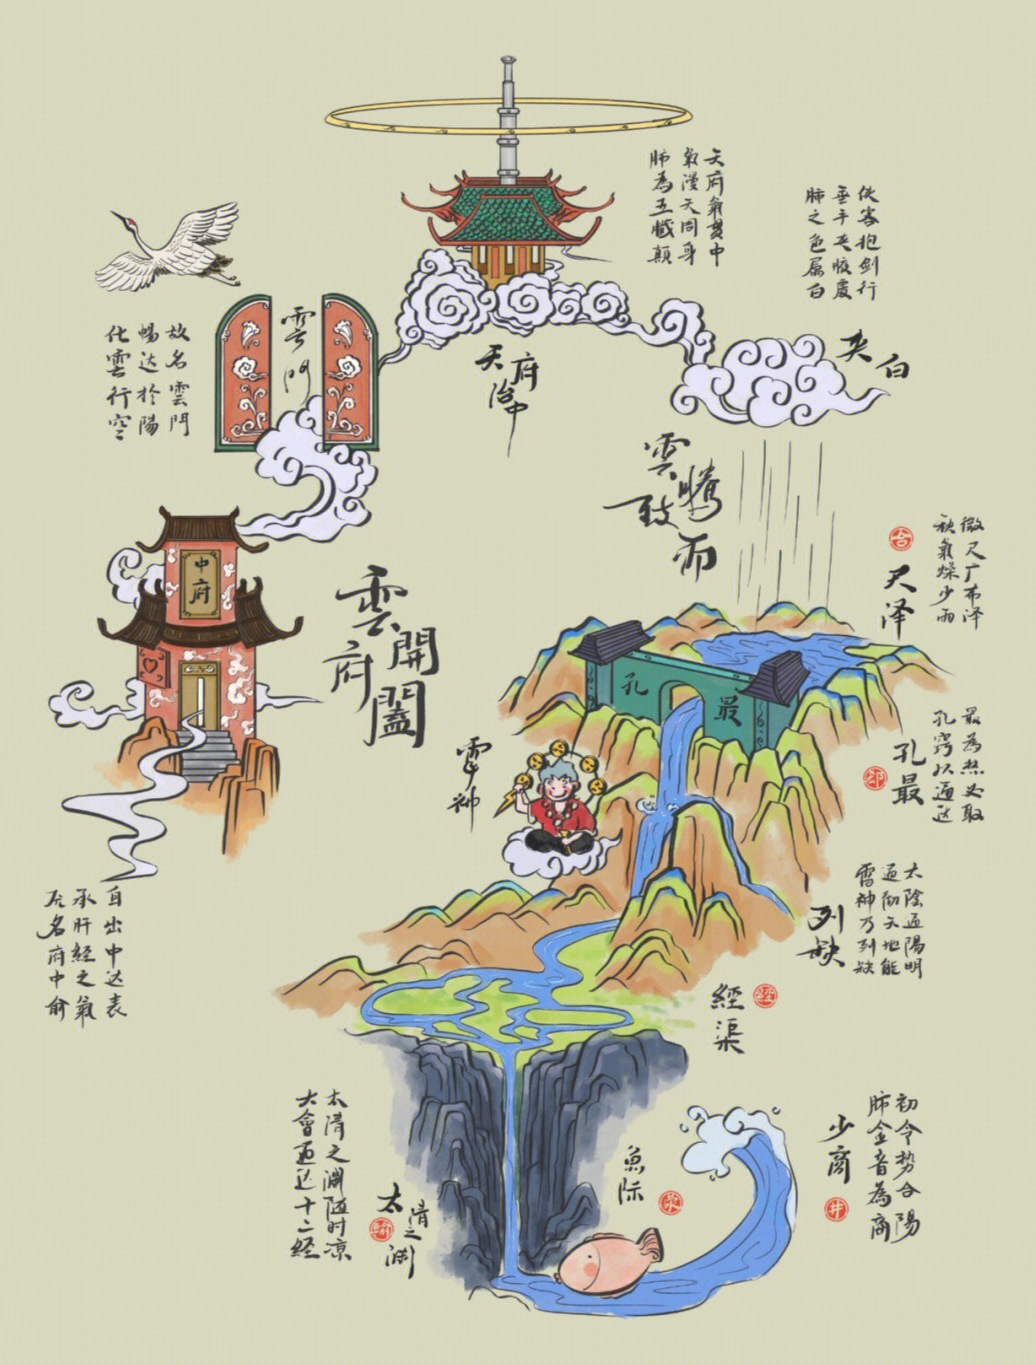 天府氣貫中
氣漫天同身
肺為五臟顛
侠客抱劍行
垂手夹腋處
肺之色属白
故名雲門
暢达於陽
化雲行空
雲门
天府治中
夹白
雲騰致雨
中府
雲開府闔
合
尺泽
微尺广布泽
秋氣燥少雨
孔最
郄
孔最
最為热必取
孔窍以通达
雷神
列缺
太陰通陽明
通彻天地能
雷神乃列缺
自出中达表
承肝経之氣
故名府中俞
經渠
経
太清之渊随时凉
大會通达十二経
太清之渊
魚际
荥
少商
井
初令势合陽
肺金音為商